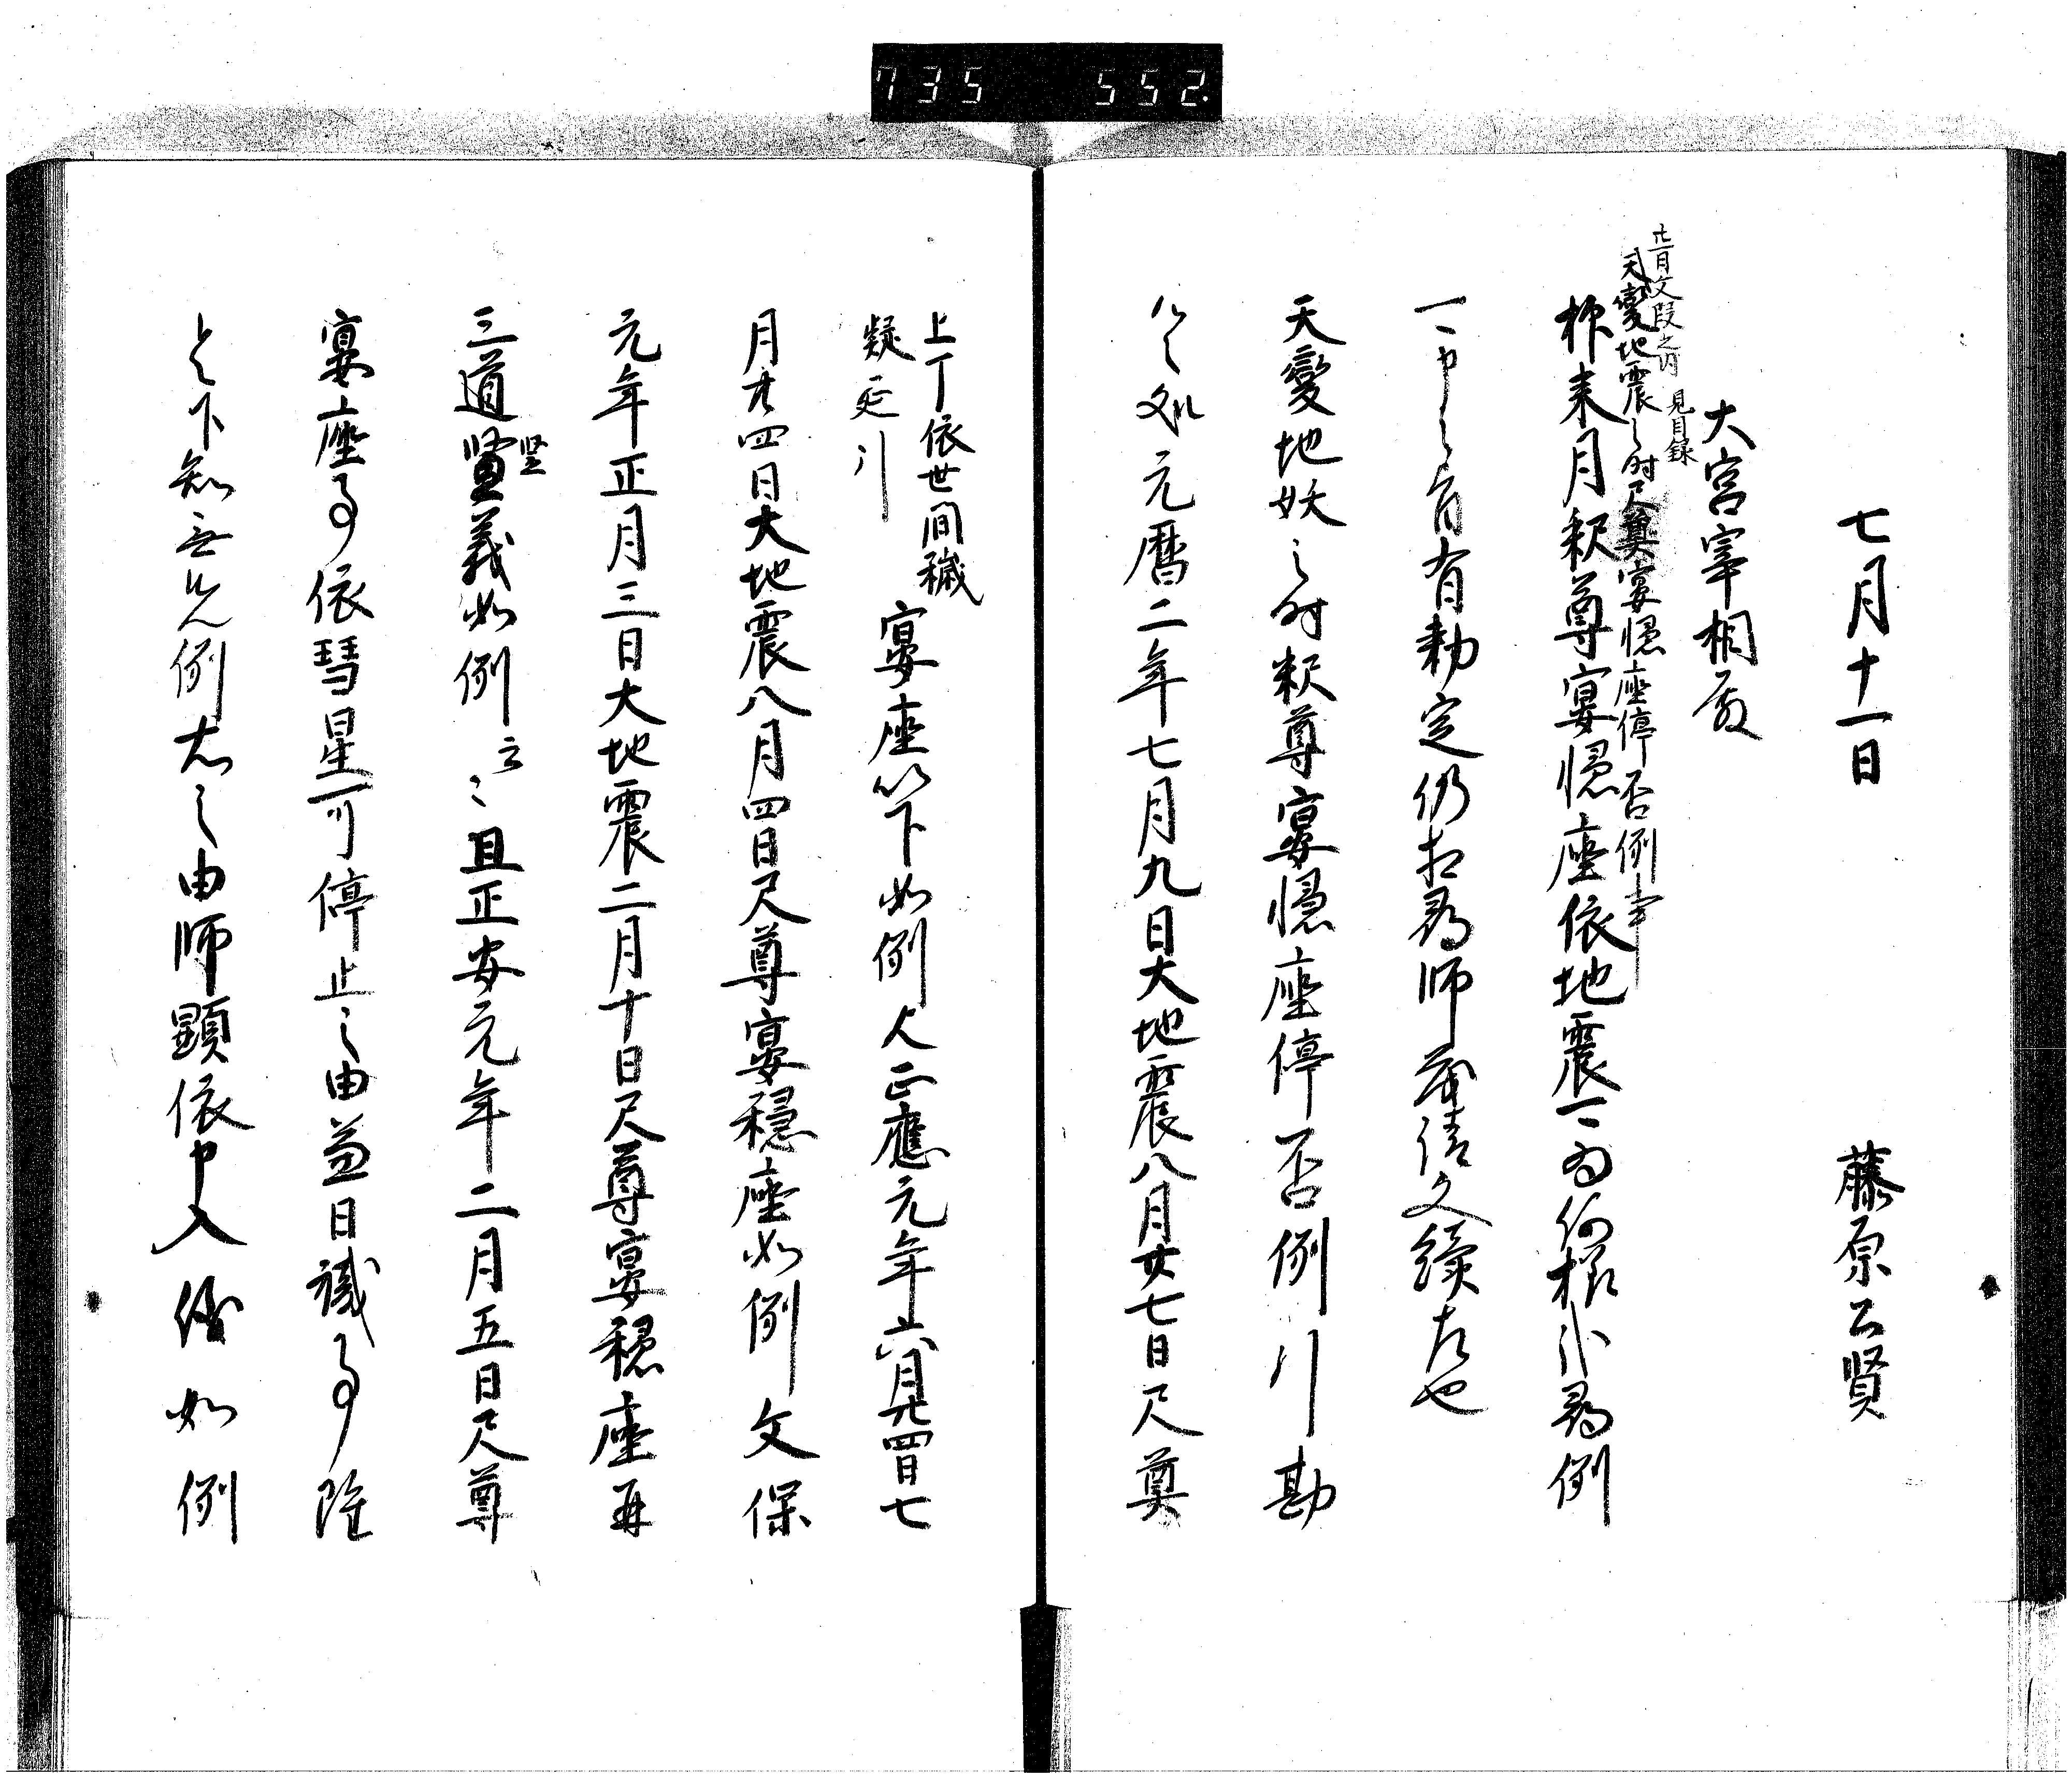 735 552.
七月十一日 藤原公賢
大宮宰相殿
廿一日文段之内 見目録
天變地震之時尺奠宴隠座停否例事
抑来月釈尊宴隠座依地震可為何様哉尋例
可申之旨有勅定仍相尋師茂請文続左也
天變地妖之時釈尊宴隠座停否例引勘
候処元暦二年七月九日大地震八月廿七日尺奠
上丁依世間穢
疑延引
宴座以下如例又正應元年六月廿四日七
月廿四日大地震八月四日尺尊宴穏座如例文保
元年正月三日大地震二月十日尺尊宴穏座再
三道竪義如例云々且正安元年二月五日尺尊
竪
宴座事依彗星可停止之由兼日議事雖
候不知無先例者之由師顕依申入候如例